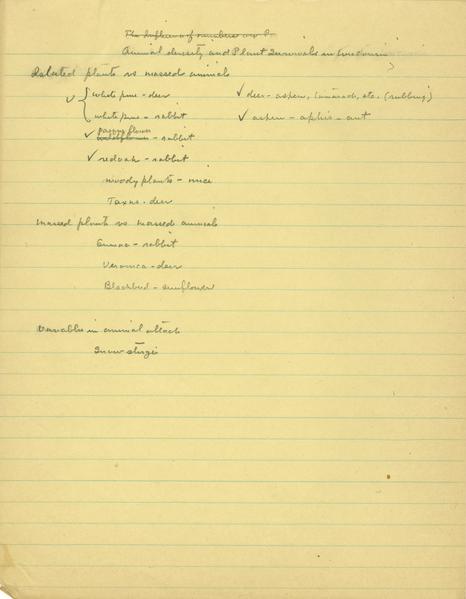 The Influence of numbers on
Animal density and Plant Survivals in
Isolated plants vs massed animals
✓ { white pine - deer ✓ deer - aspen, tamarack, etc. (rubbing)
white pine - rabbit ✓ aspen - aphis - ant
pasque flower
✓ - rabbit
✓ red oak - rabbit
woody plants - mice
Taxus - deer
massed plants vs massed animals
Sumac - rabbit
Veronica - deer
Blackbird - sunflower
Variables in animal attack
Snow